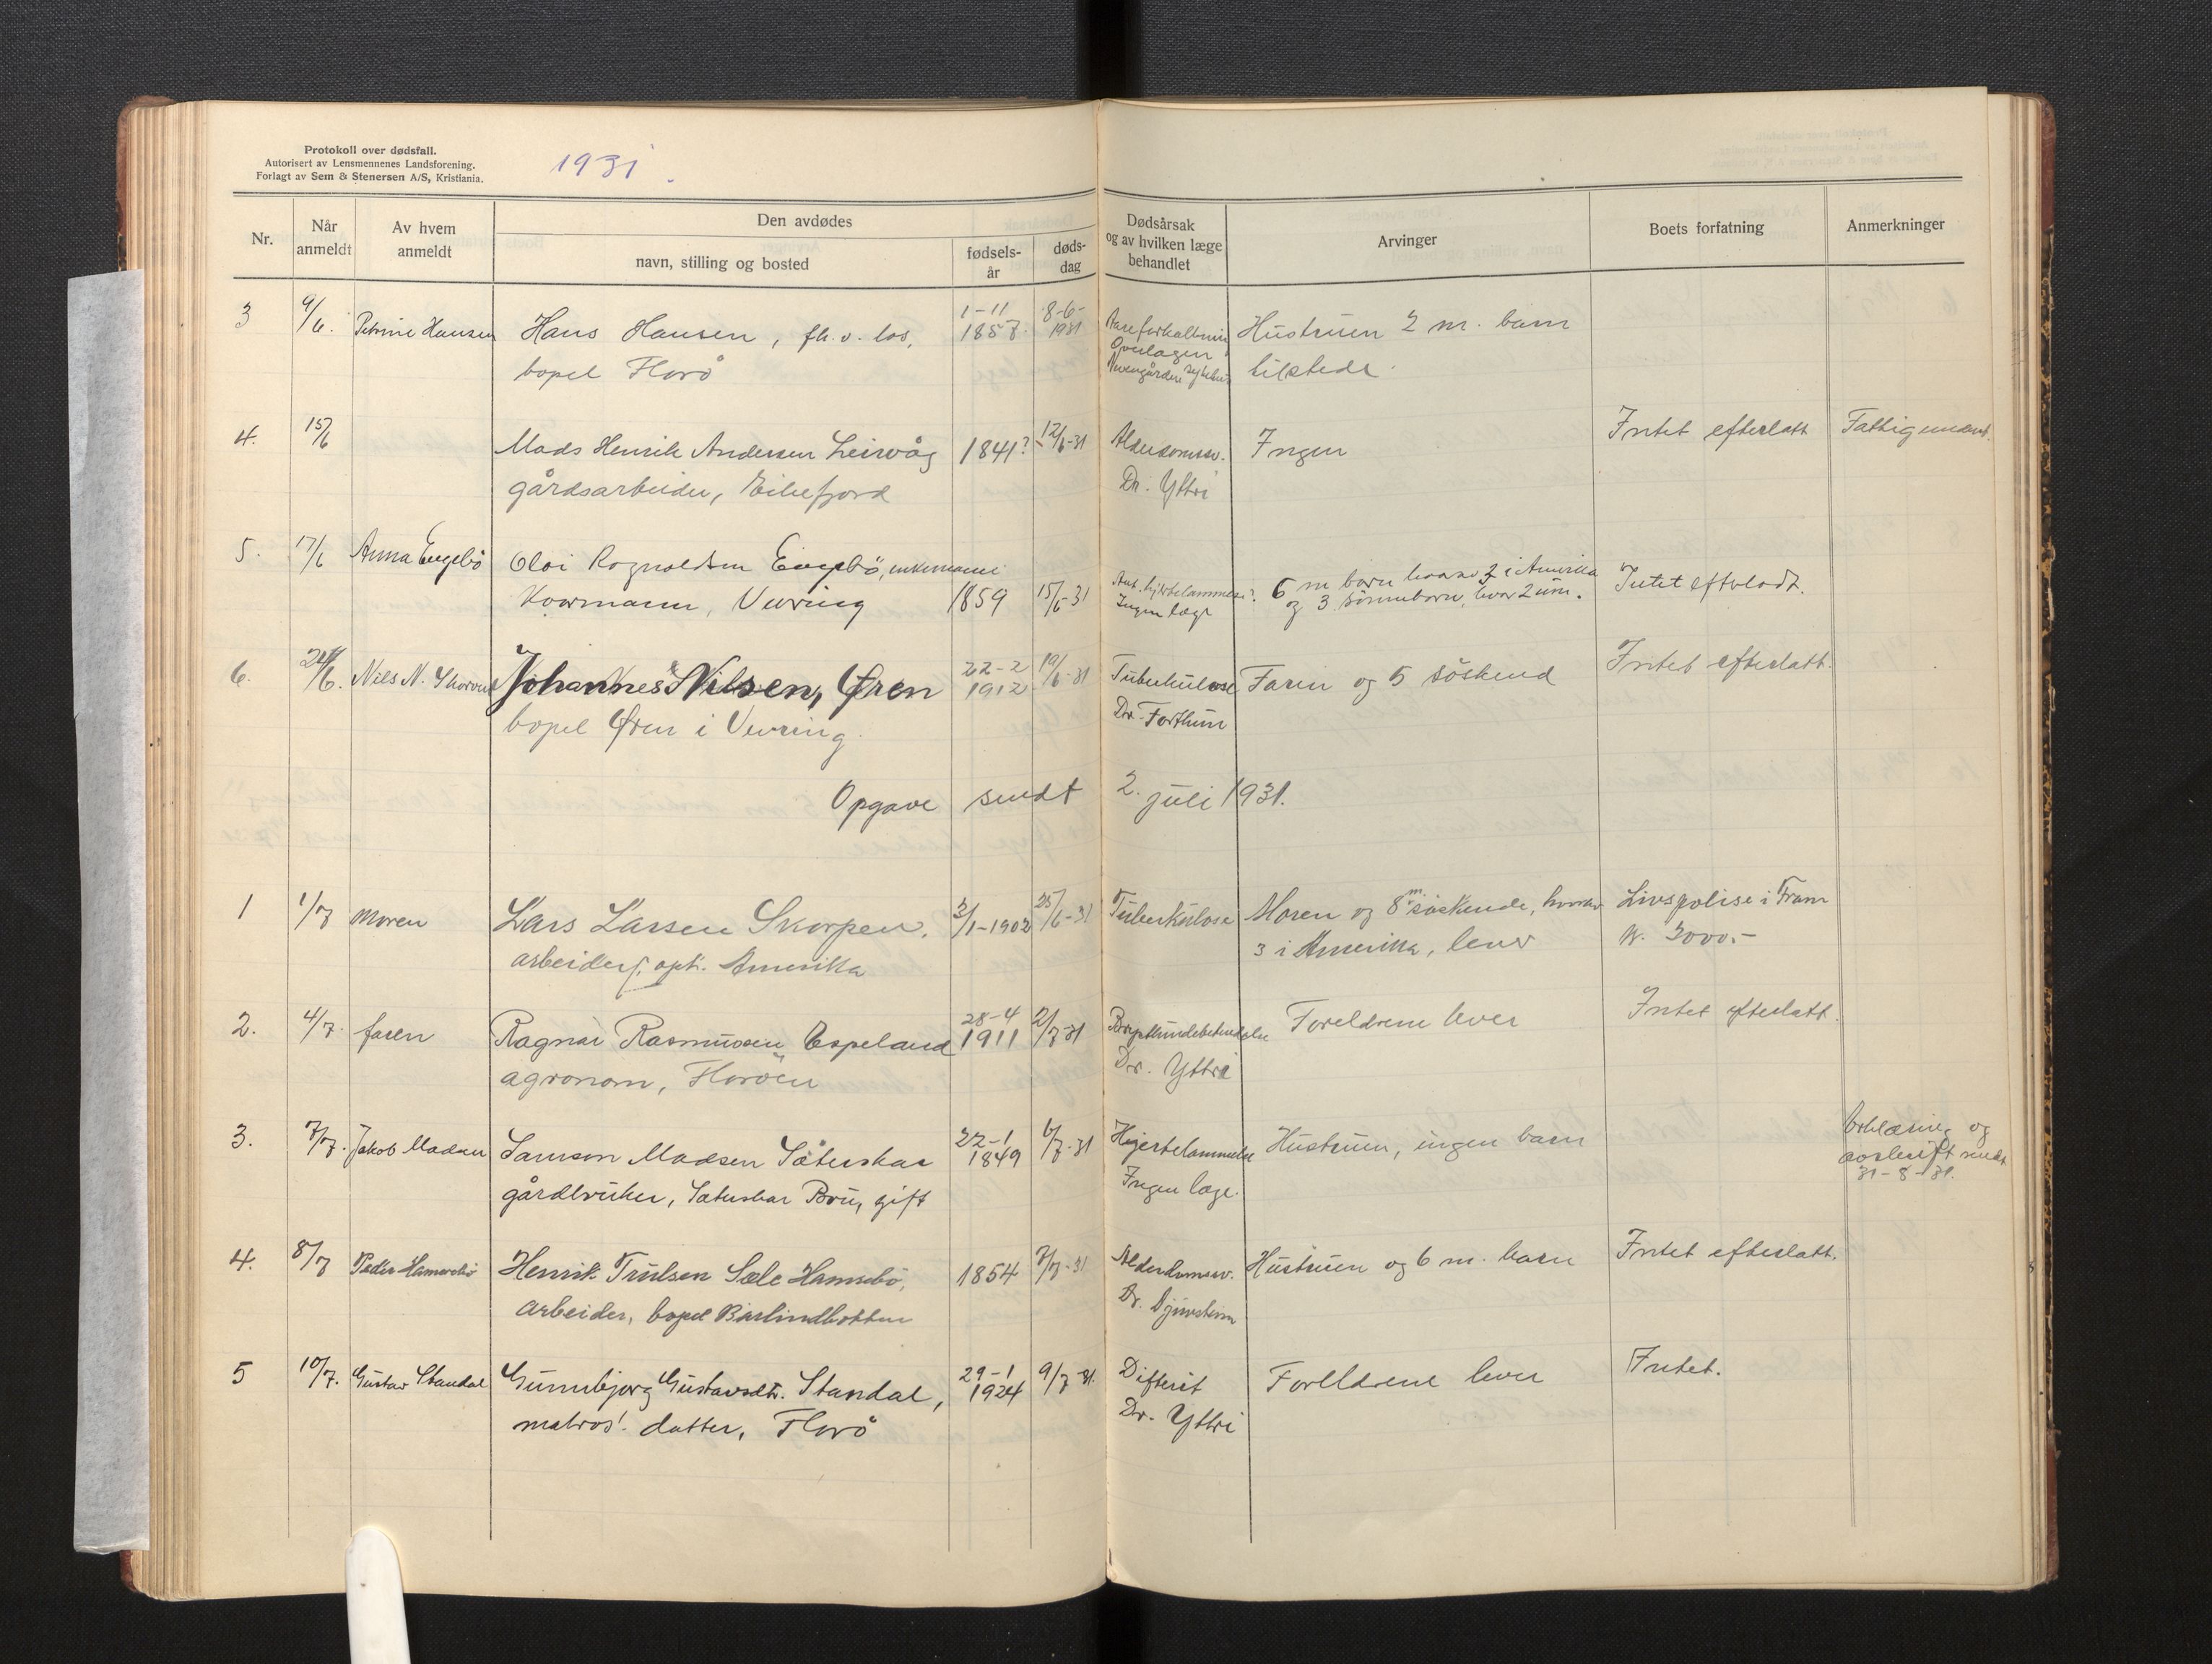 Protokoll over dødsfall.
Autorisert av Lensmennenes Landsforening.
Forlagt av Sem & Stenersen A/S, Kristiania.
1931.
Nr.
Når anmeldt
Av hvem anmeldt
Den avdødes
navn, stilling og bosted
fødsels-år
døds-dag
Dødsårsak og av hvilken læge behandlet
Arvinger
Boets forfatning
Anmerkninger
3 9/6. Petrine Hansen Hans Hansen, fh. v. los, 1-11 1857 8-6-1931 Hustruen 2 m. barn
bopel Florö tilstede.
4. 15/6 Mads Henrik Andersen Leirvåg 1841? 12/6-31 Alderdomssv. Ingen Intet efterlatt
gårdsarbeider, Eikefjord Dr. Yttri
5. 17/6 Anna Engebö Oloi Rognaldsen Engebö, enkemann
Kaarmann, Vevring 1859 15/6-31 Ant. hjertelammelse? 6 m barn hvorav 2 i Amerika Intet efterladt.
Ingen læge og 3 sönnebarn, hvor 2 um.
6. 24/6. Nils N. Johannes Nilsen, Øren 22-2 1912 19/6-31 Tuberkulose Faren og 5 söskend Intet efterlatt.
bopel Øren i Vevring. Dr. Forthun
Opgave sendt 2. juli 1931.
1 1/7 Moren Lars Larsen Skorpen. 2/1-1902 25/6-31 Tuberkulose Moren og 8 m. söskende, hvorav Livspolise i Fram
arbeider, opt. Amerika 3 i Amerika, lever kr. 3000.-
2. 4/7. faren Ragnar Rasmussen Espeland 28-4 1911 2/7-31 Foreldrene lever Intet efterlatt.
agronom, Floröen Dr. Yttri
3. 7/7. Jakob Madsen Samson Madsen Sæterskar 22-1 1849 6/7-31 Hjertelammelse Hustruen, ingen barn Erklæring og
gårdbruker, Sæterskar Bru, gift Ingen læge. avskrift sendt
31-8-31.
4. 8/7 Peder Hamrebö Henrik Trulsen Sæle Hamrebö, 1854 7/7-31 Alderdomssv. Hustruen og 6 m. barn Intet efterlatt.
arbeider, bopel Barlindbotten Dr. Djuvstein
5 10/7. Gustav Standal Gunnbjorg Gustavsdtr. Standal, 29-1 1924 9/7-31. Difterit Foreldrene lever Intet.
matros' datter, Florö Dr. Yttri